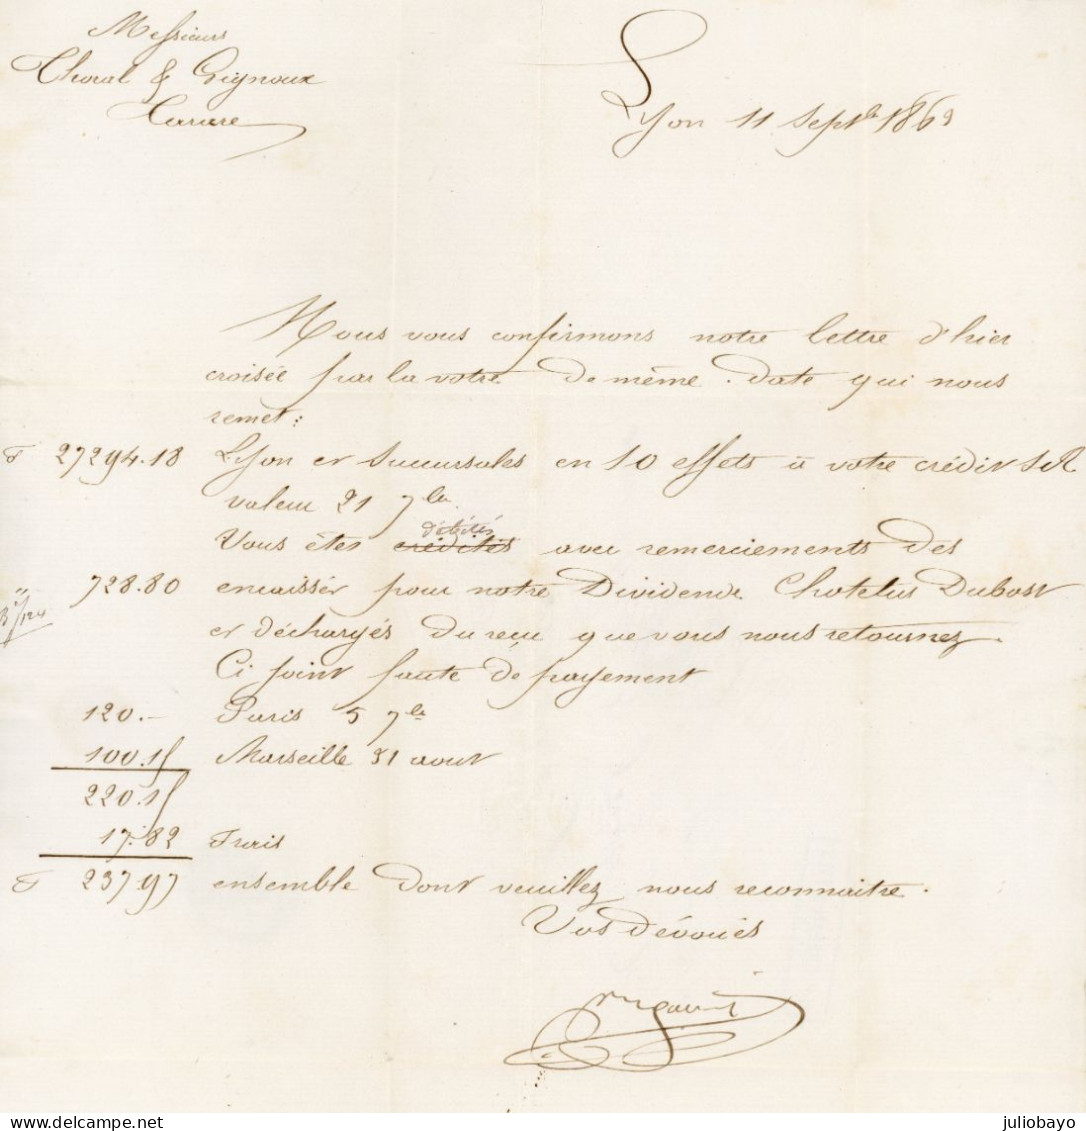 Messieurs
Thoral & Gignoux
Tarare
Lyon 11 Septbre 1869
Nous vous confirmons notre lettre d'hier
croisée par la votre de même date qui nous
remet:
F 27294.18 Lyon et Succursales en 10 effets à votre crédit
valeur 21 7bre
débités
Vous êtes crédités avec remerciements des
728.80 encaissés pour notre Dividende Chatelus Dubost
et déchargés du reçu que vous nous retournez
Ci joint faute de payement
120.— Paris 5 7bre
100.15 Marseille 31 aout
220.15
17.82 Frais
F 237.97 ensemble dont veuillez nous reconnaitre.
Vos dévoués
juliobayo